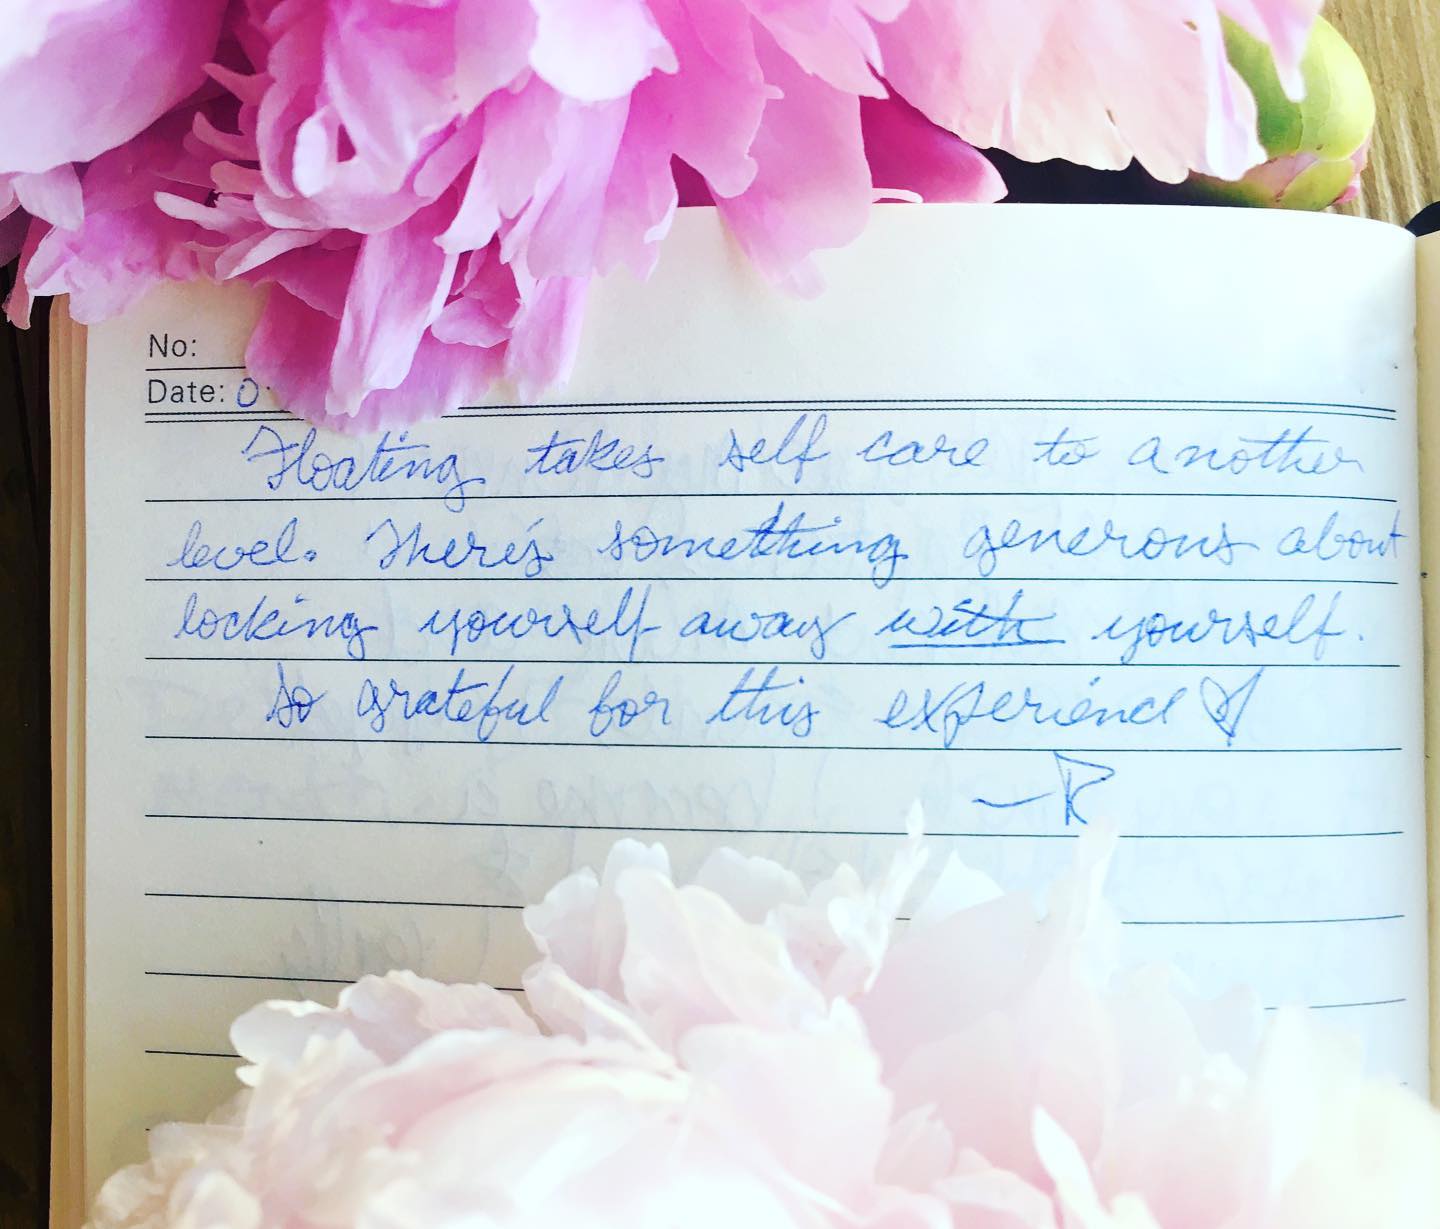 No:
Date: 0
Floating takes self care to another
level. There's something generous about
locking yourself away with yourself.
So grateful for this experience ♡
—R